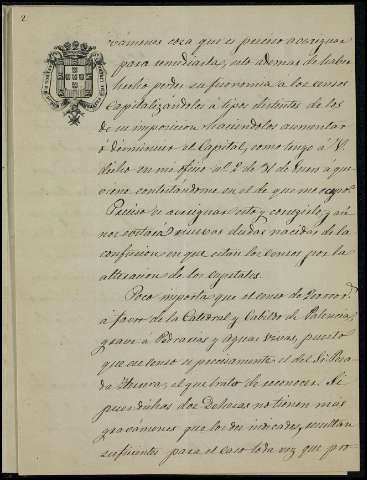 2
vámenes cosa que es preciso averiguar
para remediarla, esto ademas de haber
hecho perder su fisonomía á los censos
Capitalizándolos á tipos distintos de los
de su imposicion haciéndolos aumentar
ó disminuir el Capital, como tengo á V.
dicho en mi oficio nº 2 de 31 de Enero á que
viene contestándome en el de que me ocupo.
Preciso es averiguar esto y corregirlo, y aún
nos costará nuevas dudas nacidas de la
confusion en que están los censos por la
alteracion de los capitales.
Poco importa que el censo de
á favor de la Catedral y Cabildo de Palencia,
grave á Pedrazas y Aguas Vivas, puesto
que ese censo es precisamente el del
da el que trato de reconocer. Si
pues dichas dos Dehesas no tienen más
gravámenes que los dos indicados, resultan
suficientes para el caso toda vez que por